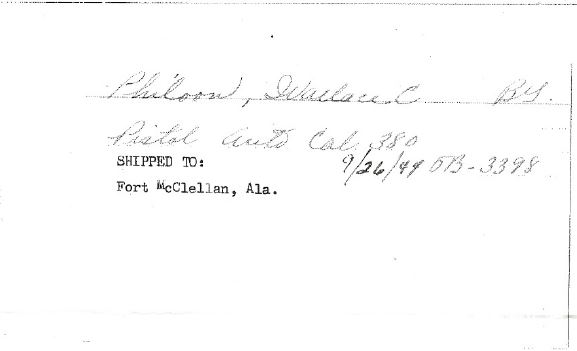 Philoon, Wallace C BG.
Pistol Auto Cal. 380
SHIPPED TO: 9/26/44 OB-3398
Fort McClellan, Ala.